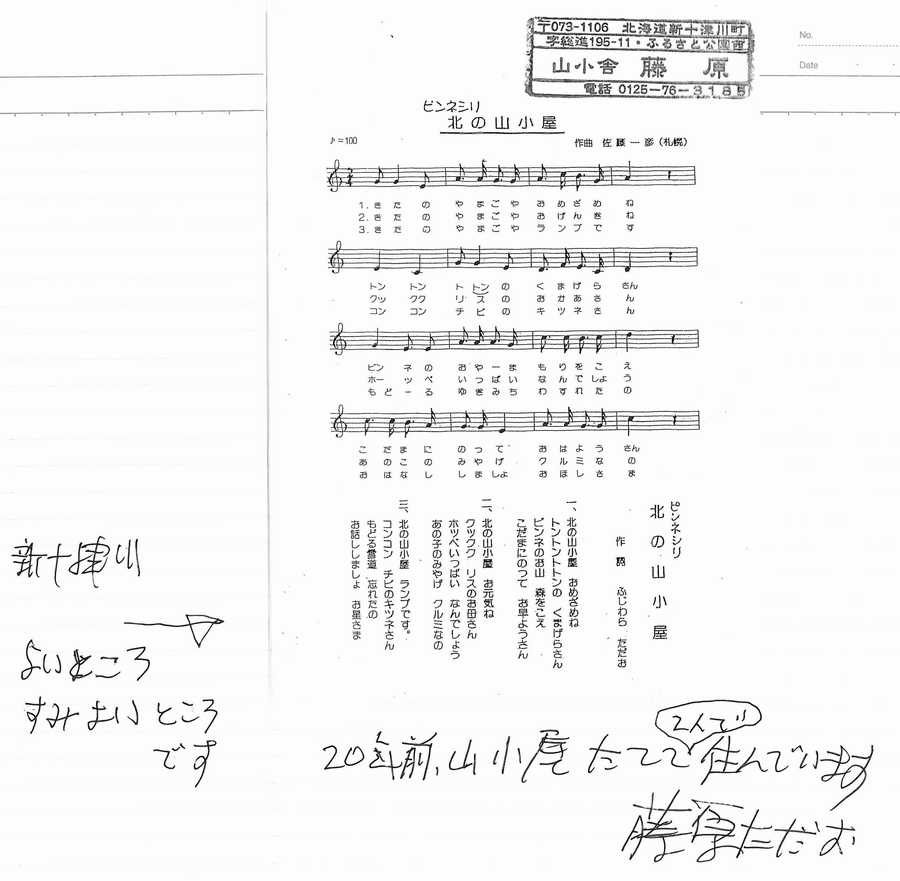 No.
Date
〒073-1106 北海道新十津川町
字総進195-11・ふるさと公園西
山小舎 藤原
電話 0125-76-3185
ピンネシリ
北の山小屋
♪=100
作曲 佐藤一彦(札幌)
1.きたの やまごや おめざめ ね
2.きたの やまごや おげんき ね
3.きたの やまごや ランプで す
トン トン トトンの くまげら さん
クッ クク リスの おかあさ ん
コン コン チビの キツネさ ん
ピン ネの おやーま もりをこ え
ホー ッペ いっぱい なんでしょ う
もどーる ゆきみち わすれた の
こだまに のって おはよう さん
あのこの みやげ クルミな の
おはなし しましょ おほしさ ま
ピンネシリ
北の山小屋
作詞 ふじわら ただお
一、北の山小屋 おめざめね
トントントトンの くまげらさん
ピンネのお山 森をこえ
こだまにのって お早ようさん
二、北の山小屋 お元気ね
クックク リスのお母さん
ホッペいっぱい なんでしょう
あの子のみやげ クルミなの
三、北の山小屋 ランプです。
コンコン チビのキツネさん
もどる雪道 忘れたの
お話ししましょ お星さま
新十津川
よいところ
すみよいところ
です
20年前、山小屋たてて2人で住んでいます
藤原ただお